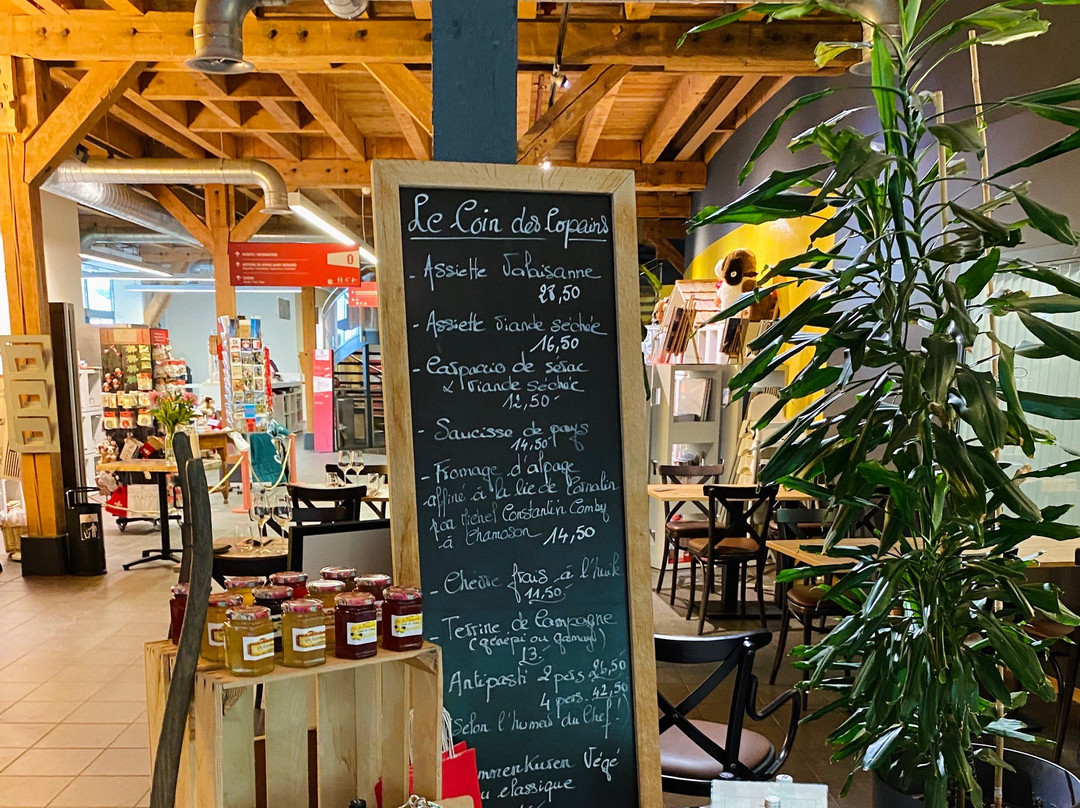 Le Coin des Copains
- Assiette Valaisanne
28,50
- Assiette Viande séchée
16,50
- Carpaccio de sérac
& Viande séchée
12,50
- Saucisse de pays
14,50
- Fromage d'alpage
affiné à la lie de Cornalin
par Michel Constantin Comby
à Chamoson 14,50
- Chèvre frais à l'huile
11,50
- Terrine de Campagne
(génépi ou
13.-
Antipasti 2 pers 26,50
4 pers. 42,50
Selon l'humeur du Chef!
Végé
classique
0